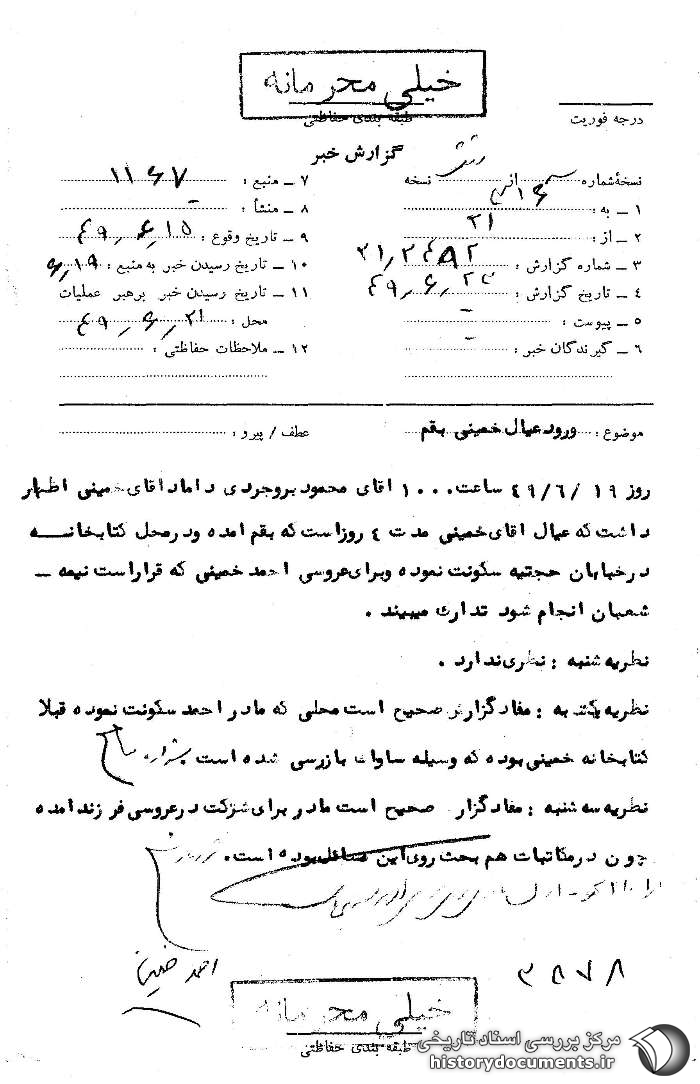 خیلی محرمانه
طبقه بندی حفاظتی
درجه فوریت
گزارش خبر
نسخهٔ شماره از نسخه
۱ ــ به :
۲ ــ از : ۲۱
۳ ــ شماره گزارش :
۴ ــ تاریخ گزارش :
۵ ــ پیوست : -
۶ ــ گیرندگان خبر : -
۷ ــ منبع :
۸ ــ منشأ : -
۹ ــ تاریخ وقوع : ۴۹٫۶٫۱۵
۱۰ ــ تاریخ رسیدن خبر به منبع : ۶٫۱۹
۱۱ ــ تاریخ رسیدن خبر برهبر عملیات
محل : ۴۹٫۶٫۲۱
۱۲ ــ ملاحظات حفاظتی :
موضوع : ورود عیال خمینی بقم
عطف / پیرو :
روز ۱۹ /۴۹/۶ ساعت ۱۰۰۰ اقای محمود بروجردی داماد اقای خمینی اظهار
داشت که عیال اقای خمینی مدت ٤ روز است که بقم امده ودر محل کتابخانه
در خیابان حجتیه سکونت نموده وبرای عروسی احمد خمینی که قرار است نیمه ــ
شعبان انجام شود تدارك میبیند .
نظریه شنبه : نظری ندارد .
نظریه یکشنبه : مفاد گزارش صحیح است محلی که مادر احمد سکونت نموده قبلا
کتابخانه خمینی بوده که وسیله ساواك بازرسی شده است
نظریه سه شنبه : مفاد گزار صحیح است مادر برای شرکت در عروسی فرزند امده
چون در مکاتبات هم بحث روی این مسائل بوده است.
احمد خمینی
۳۸۷۸
خیلی محرمانه
طبقه بندی حفاظتی
مرکز بررسی اسناد تاریخی
historydocuments.ir